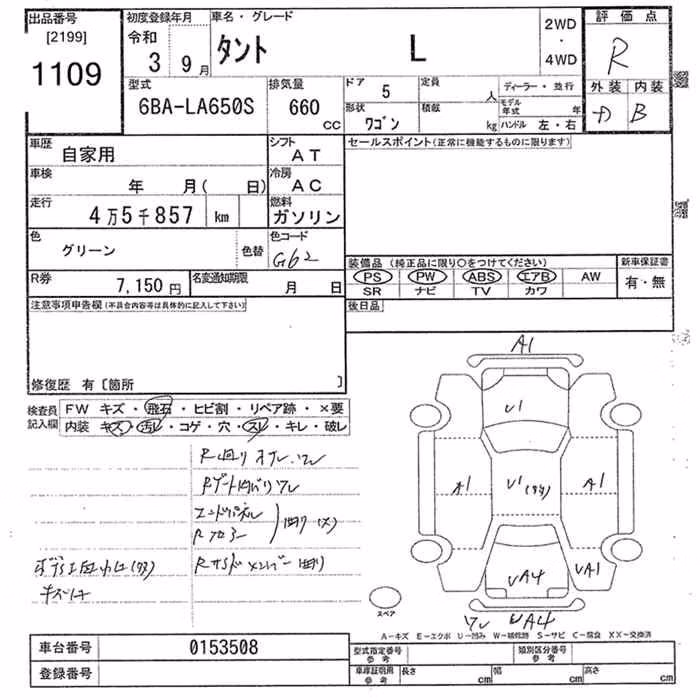 出品番号
[2199]
1109
初度登録年月
令和
3 9月
車名・グレード
タント L
2WD
・
4WD
評価点
R
外装 内装
D B
型式
6BA-LA650S
排気量
660 cc
ドア 5
定員 人
形状 ワゴン
積載 kg
ディーラー・並行
モデル年式 年
ハンドル 左・右
車歴
自家用
シフト
AT
車検
年 月( 日)
冷房
AC
走行
4万5千857 km
燃料
ガソリン
色
グリーン
色替
色コード
G62
R券
7,150円
名変通知期限
月 日
セールスポイント(正常に機能するものに限ります)
装備品(純正品に限り○をつけてください)
PS PW ABS エアB AW
SR ナビ TV カワ
新車保証書
有・無
後日品
注意事項申告欄(不具合内容等は具体的に記入して下さい)
修復歴 有〔箇所 〕
検査員記入欄
FW キズ・飛石・ヒビ割・リペア跡・×要
内装 キズ・汚レ・コゲ・穴・スレ・キレ・破レ
Rゲート内バリワレ
エンドパネル
Rフロアー
曲り(X)
Rサイドメンバー曲り
A1
U1
A1
A1
UA4
UA1
ワレ UA4
スペア
A-キズ E-エクボ U-凹み W-補修跡 S-サビ C-腐食 XX-交換済
車台番号
0153508
登録番号
型式指定番号
参考
類別区分番号
参考
車庫証明用
参考
長さ cm
幅 cm
高さ cm